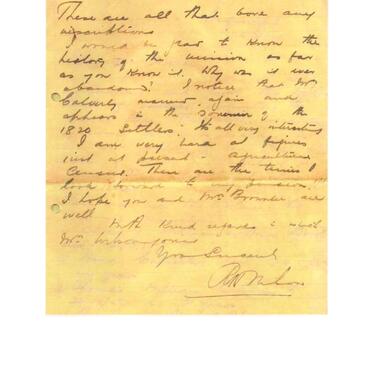 These are all that bore any
inscriptions
I would be glad to know the
history of the mission as far
as you know it. Why was it ever
abandoned? I notice that Mr
Calverly married again and
appears in the souvenir of the
1820 Settlers. It's all very interesting
I am very hard at figures
just at present - Agriculture
Census. These are the times I
look forward to my pension !!!
I hope you and Mrs are
well
With kind regards to
Mrs
Yours Sincerely